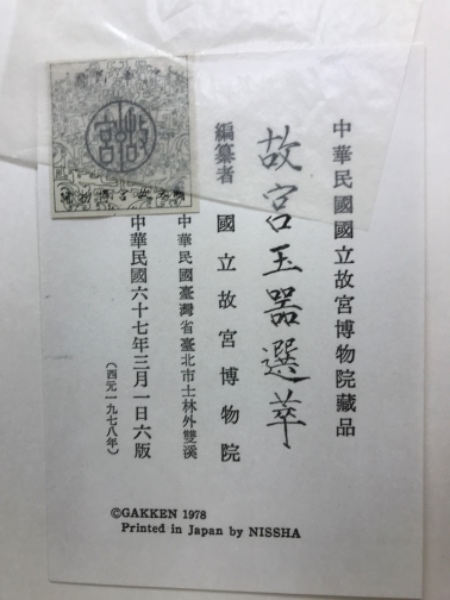 中華民國國立故宮博物院藏品
故宮玉器選萃
編纂者 國立故宮博物院
中華民國臺灣省臺北市士林外雙溪
中華民國六十七年三月一日六版
（西元一九七八年）
故宮
©GAKKEN 1978
Printed in Japan by NISSHA